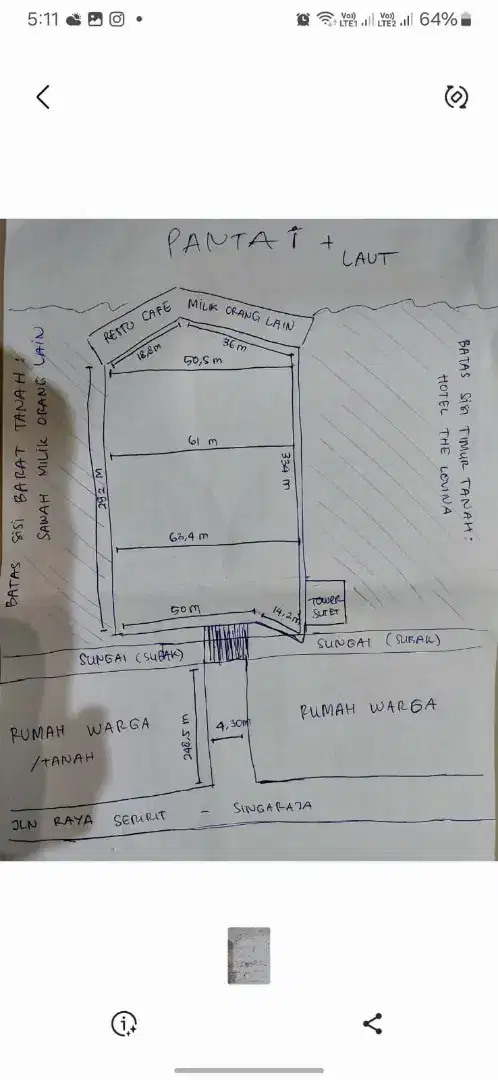 5:11
Vo)) LTE1 Vo)) LTE2 64%
PANTAI + LAUT
RESTO CAFE MILIK ORANG LAIN
18,8m
36m
50,5 m
BATAS SISI BARAT TANAH :
SAWAH MILIK ORANG LAIN
BATAS SISI TIMUR TANAH :
HOTEL THE LOVINA
61 m
292 m
334 m
63,4 m
50m
14,2m
TOWER
SUTET
SUNGAI (SUBAK)
SUNGAI (SUBAK)
RUMAH WARGA
/TANAH
248,5 m
4,30m
RUMAH WARGA
JLN RAYA SERIRIT - SINGARAJA